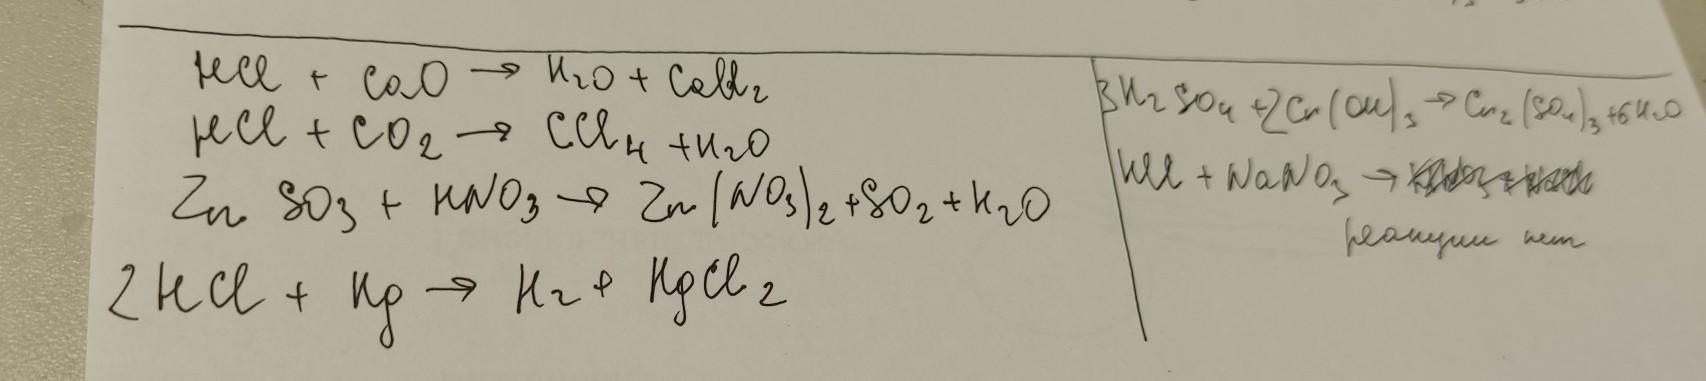 HCl + CaO → H₂O + CaCl₂
HCl + CO₂ → CCl₄ + H₂O
Zn SO₃ + HNO₃ → Zn(NO₃)₂ + SO₂ + H₂O
2HCl + Hg → H₂ + HgCl₂
3H₂SO₄ + 2Cr(OH)₃ → Cr₂(SO₄)₃ + 6H₂O
HCl + NaNO₃ →
реакции нет